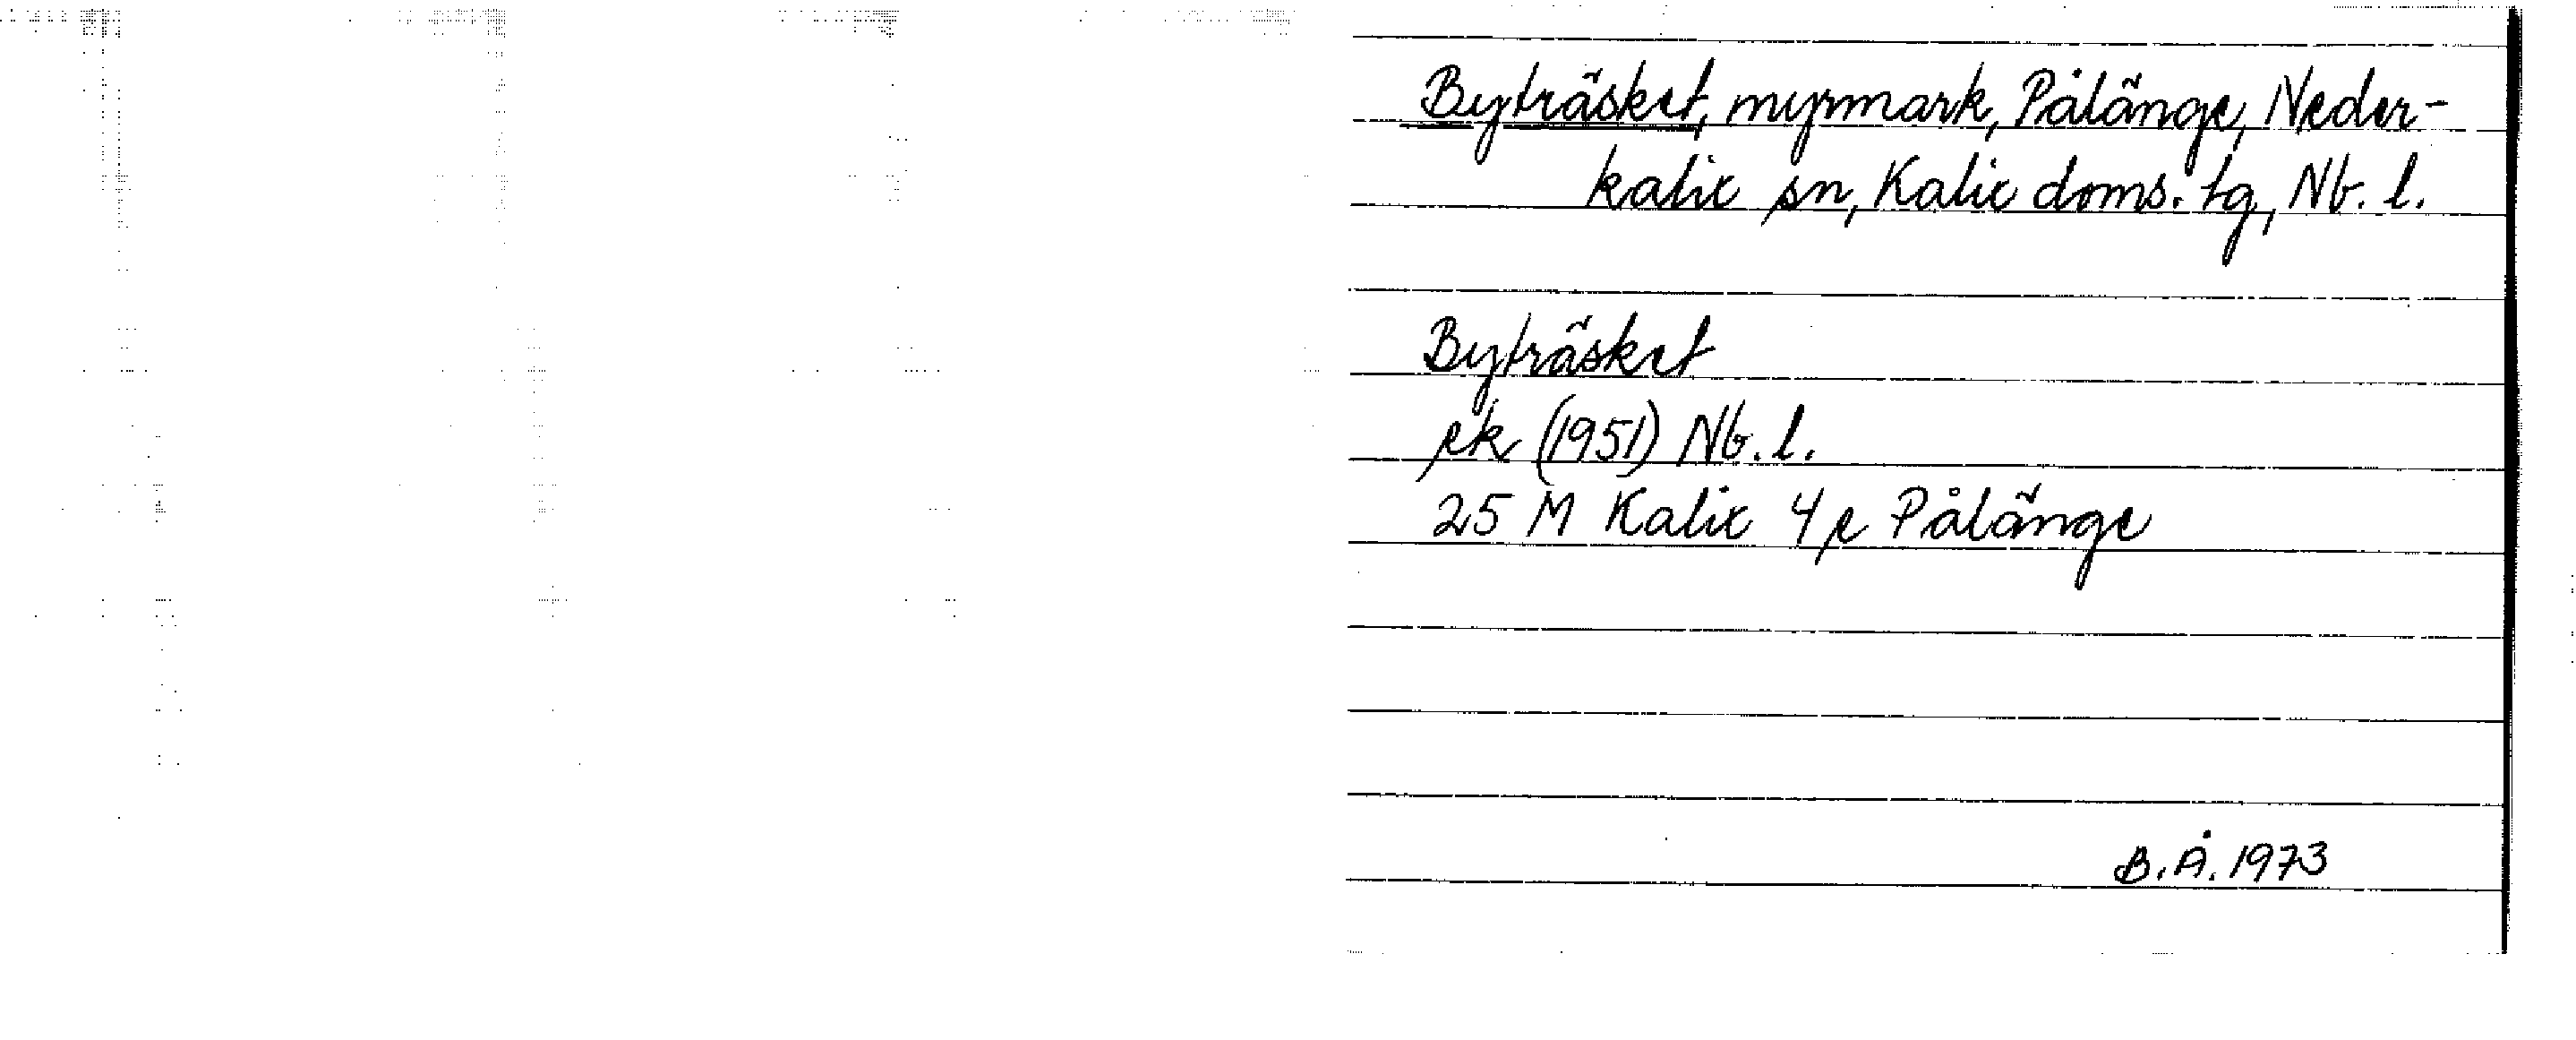 Byträsket, myrmark, Pålänge, Neder-
kalix sn, Kalix doms. tg, Nb. l.
Byträsket
ek (1951) Nb. l.
25 M Kalix 4 e Pålänge
B.Å. 1973